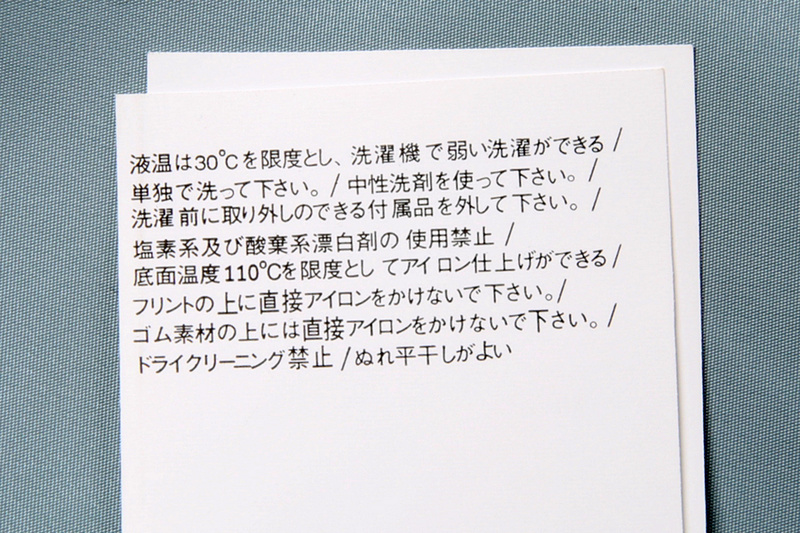 液温は30℃を限度とし、洗濯機で弱い洗濯ができる /
単独で洗って下さい。 / 中性洗剤を使って下さい。 /
洗濯前に取り外しのできる付属品を外して下さい。 /
塩素系及び酸棄系漂白剤の使用禁止 /
底面温度110℃を限度としてアイロン仕上げができる /
フリントの上に直接アイロンをかけないで下さい。 /
ゴム素材の上には直接アイロンをかけないで下さい。 /
ドライクリーニング禁止 / ぬれ平干しがよい